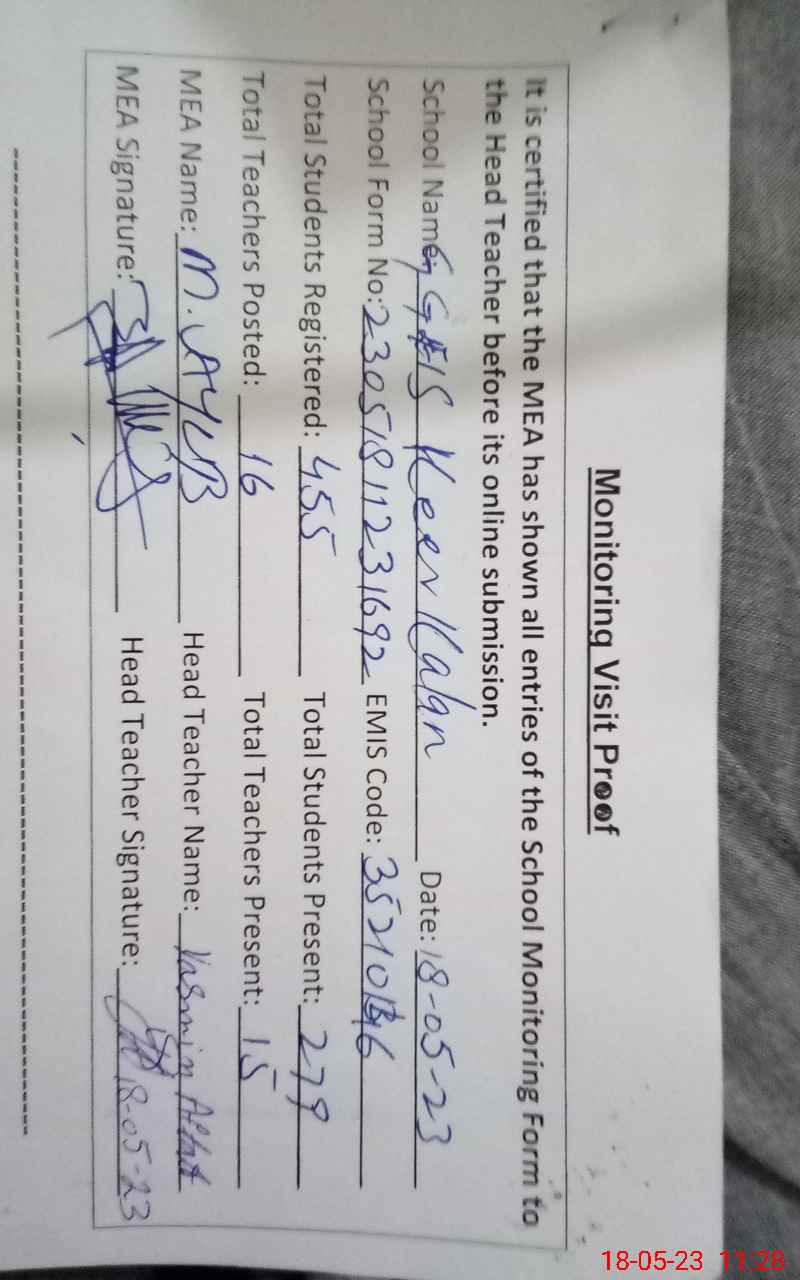 Monitoring Visit Proof
It is certified that the MEA has shown all entries of the School Monitoring Form to
the Head Teacher before its online submission.
School Name: GGES Keer Kalan Date: 18-05-23
School Form No: 23051811231692 EMIS Code: 35210146
Total Students Registered: 455 Total Students Present: 279
Total Teachers Posted: 16 Total Teachers Present: 15
MEA Name: M. AYUB Head Teacher Name: Yasmin Altaf
MEA Signature: Head Teacher Signature: 18-05-23
18-05-23 11:28